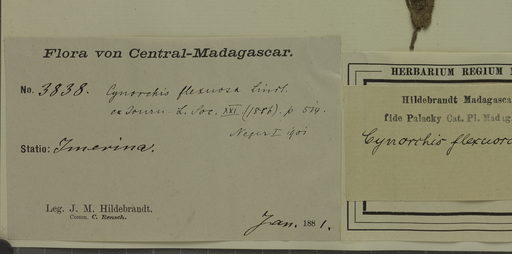 Flora von Central-Madagascar.
No. 3838. Cynorchis flexuosa Lindl.
ex Journ. L. Soc. XXI (1886). p. 519.
I 1901
Statio: Imerina.
Leg. J. M. Hildebrandt.
Comm. C. Rensch.
Jan. 1881.
HERBARIUM REGIUM
Hildebrandt Madagasca
fide Palacky Cat. Pl. Madag.
Cynorchis flexuo